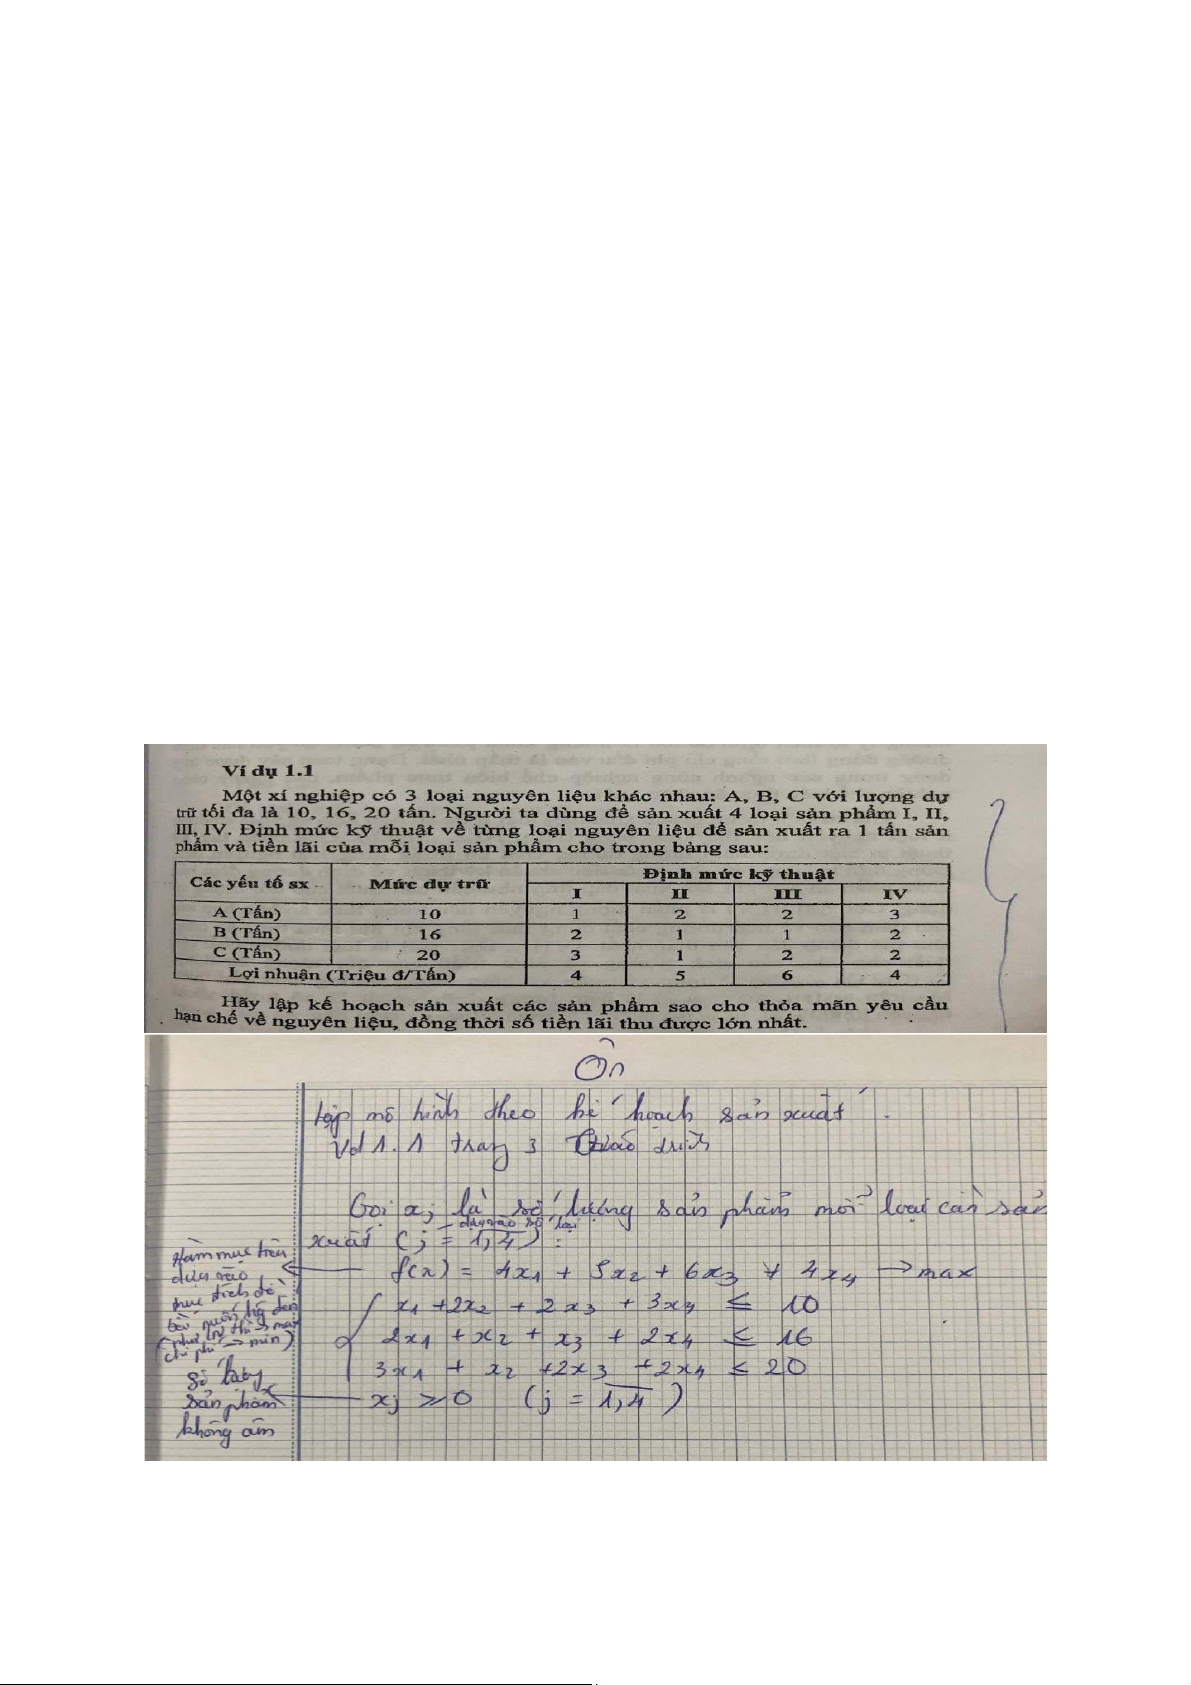 Ví dụ 1.1
Một xí nghiệp có 3 loại nguyên liệu khác nhau: A, B, C với lượng dự
trữ tối đa là 10, 16, 20 tấn. Người ta dùng để sản xuất 4 loại sản phẩm I, II,
III, IV. Định mức kỹ thuật về từng loại nguyên liệu để sản xuất ra 1 tấn sản
phẩm và tiền lãi của mỗi loại sản phẩm cho trong bảng sau:
Các yếu tố sx Mức dự trữ Định mức kỹ thuật
I II III IV
A (Tấn) 10 1 2 2 3
B (Tấn) 16 2 1 1 2
C (Tấn) 20 3 1 2 2
Lợi nhuận (Triệu đ/Tấn) 4 5 6 4
Hãy lập kế hoạch sản xuất các sản phẩm sao cho thỏa mãn yêu cầu
hạn chế về nguyên liệu, đồng thời số tiền lãi thu được lớn nhất.
Ôn
Lập mô hình theo kế hoạch sản xuất.
Vd 1.1 trang 3 Giáo trình
Gọi xj là số lượng sản phẩm mỗi loại cần sản
dựa vào số loại
xuất (j = 1,4) :
f(x) = 4x1 + 5x2 + 6x3 + 4x4 → max
x1 + 2x2 + 2x3 + 3x4 ≤ 10
2x1 + x2 + x3 + 2x4 ≤ 16
3x1 + x2 + 2x3 + 2x4 ≤ 20
xj ≥ 0 (j = 1,4)
Hàm mục tiêu
dựa vào
mục đích đề
chi phí → min)
số lượng
sản phẩm
không âm